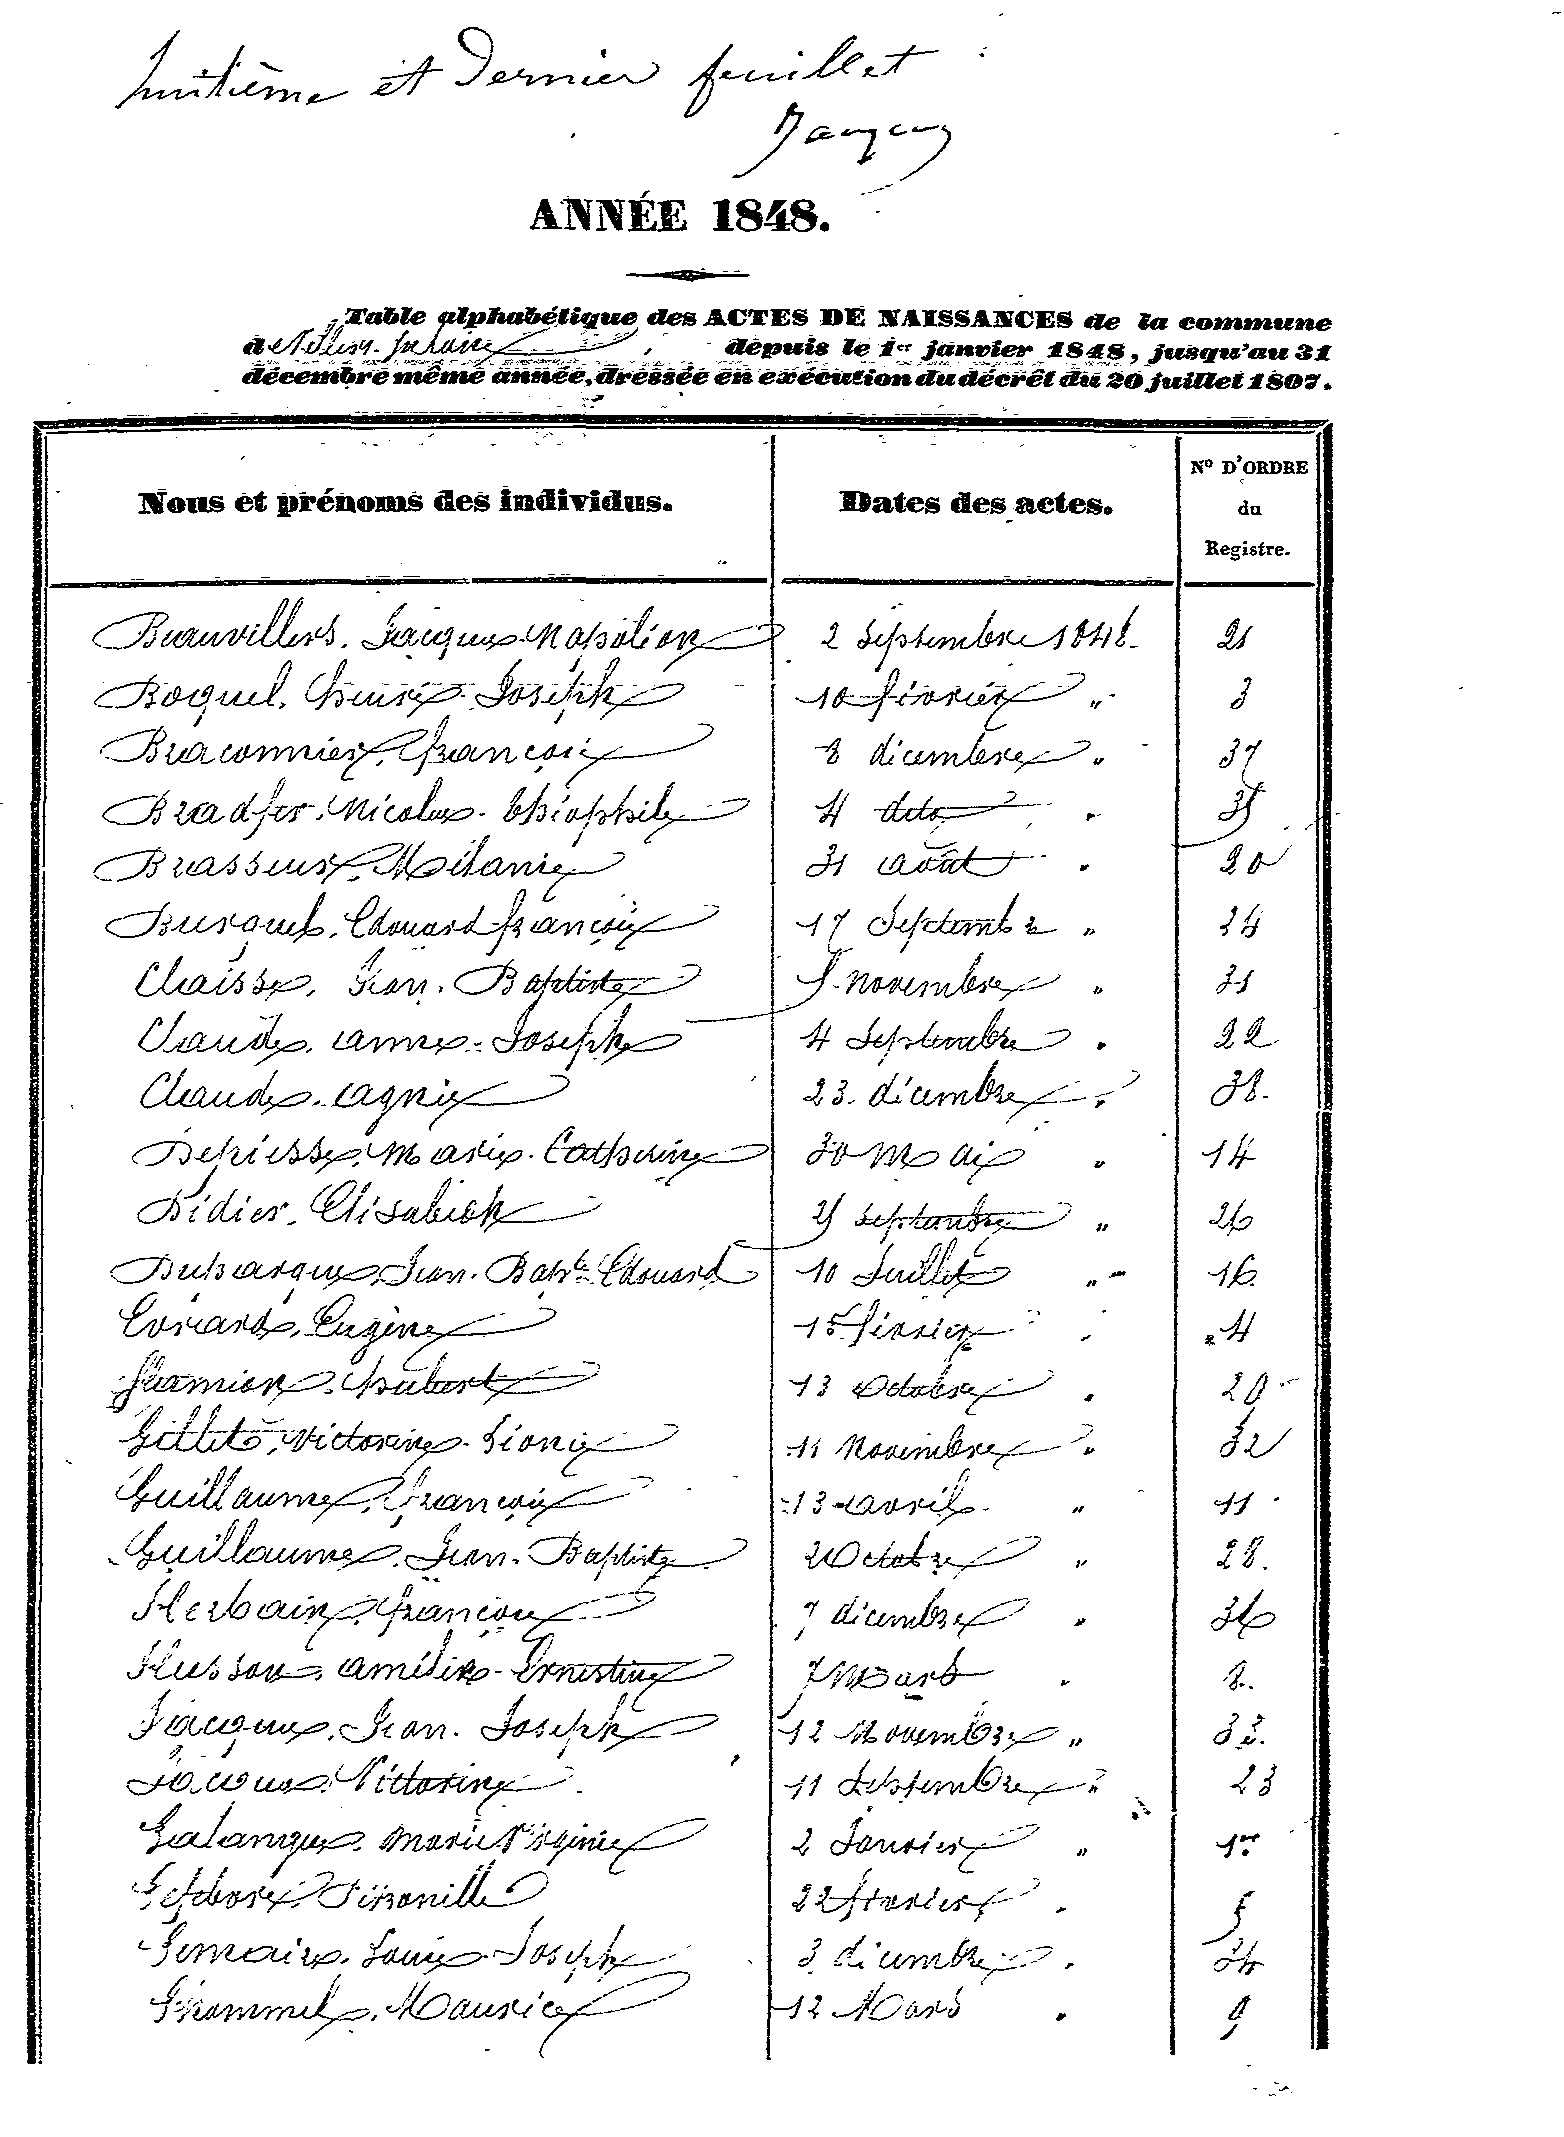 huitième et dernier feuillet
ANNÉE 1848.
Table alphabétique des ACTES DE NAISSANCES de la commune
d depuis le 1er janvier 1848, jusqu'au 31
décembre même année, dressée en exécution du décret du 20 juillet 1807.
Nous et prénoms des individus. Dates des actes. No D'ORDRE du Registre.
Beauvillers. Jacques-Napoléon 2 Septembre 1848. 21
Boquel. henri-Joseph 10 février " 3
Braconnier. françois 8 décembre " 37
Bradfer. Nicolas-théophile 4 dito " 35
Brasseur. Mélanie 31 août " 20
Burquel. Edouard françois 17 Septembre " 24
Claisse. Jean-Baptiste 5 novembre " 31
Claude. anne-Joseph 4 Septembre " 22
Claude. agnès 23 décembre " 38.
Marie-Catherine 30 Mai " 14
Didier. Elisabeth 25 Septembre " 26
Jean-Bapte Edouard 10 Juillet " 16.
Evrard. Eugène 15 février " 4
hubert 13 Octobre " 29
Gillet. Victorine-Léonie 11 Novembre " 32
Guillaume. françois 13 avril " 11
Guillaume. Jean-Baptiste 2 Octobre " 28.
Herbain. françois 7 décembre " 36
Husson. amélie-Ernestine 7 Mars " 8.
Jacques. Jean-Joseph 12 Novembre " 33.
Jacques. Victorine 11 Septembre " 23
Lalanque. Marie Virginie 2 Janvier " 1er
Lefebvre. Pétronille 22 février " 5
Lemaire. Louis-Joseph 3 décembre " 34
Lhommel. Maurice 12 Mars " 9